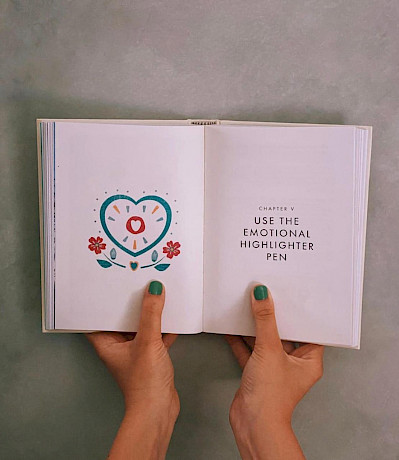 CHAPTER V
USE THE
EMOTIONAL
HIGHLIGHTER
PEN